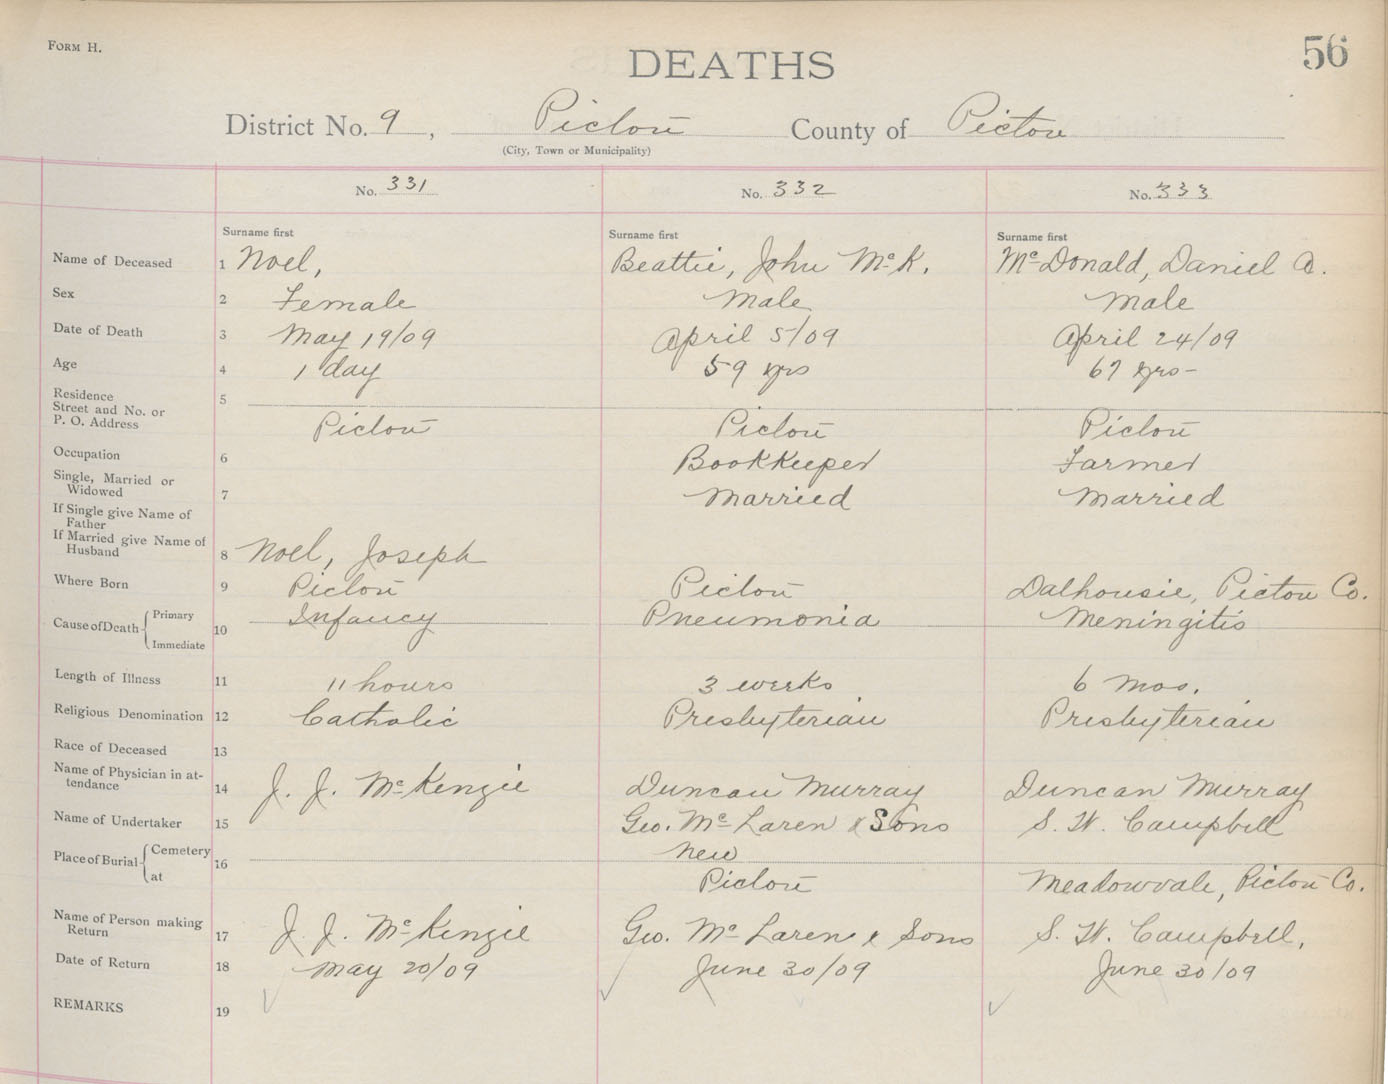 FORM H.
DEATHS
56
District No. 9, Pictou County of Pictou
(City, Town or Municipality)
No. 331 No. 332 No. 333
Surname first Surname first Surname first
Name of Deceased 1 Noel, Beattie, John McK. McDonald, Daniel A.
Sex 2 Female Male Male
Date of Death 3 May 19/09 April 5/09 April 24/09
Age 4 1 day 59 yrs 67 yrs-
Residence
Street and No. or 5
P. O. Address Pictou Pictou Pictou
Occupation 6 Bookkeeper Farmer
Single, Married or
Widowed 7 Married Married
If Single give Name of
Father
If Married give Name of
Husband 8 Noel, Joseph
Where Born 9 Pictou Pictou Dalhousie, Pictou Co.
Cause of Death Primary Infancy Pneumonia Meningitis
10
Immediate
Length of Illness 11 11 hours 3 weeks 6 mos.
Religious Denomination 12 Catholic Presbyterian Presbyterian
Race of Deceased 13
Name of Physician in at-
tendance 14 J. J. McKenzie Duncan Murray Duncan Murray
Name of Undertaker 15 Geo. McLaren & Sons S. W. Campbell
Place of Burial Cemetery New
16
at Pictou Meadowvale, Pictou Co.
Name of Person making
Return 17 J. J. McKenzie Geo. McLaren & Sons S. W. Campbell,
Date of Return 18 May 20/09 June 30/09 June 30/09
REMARKS 19